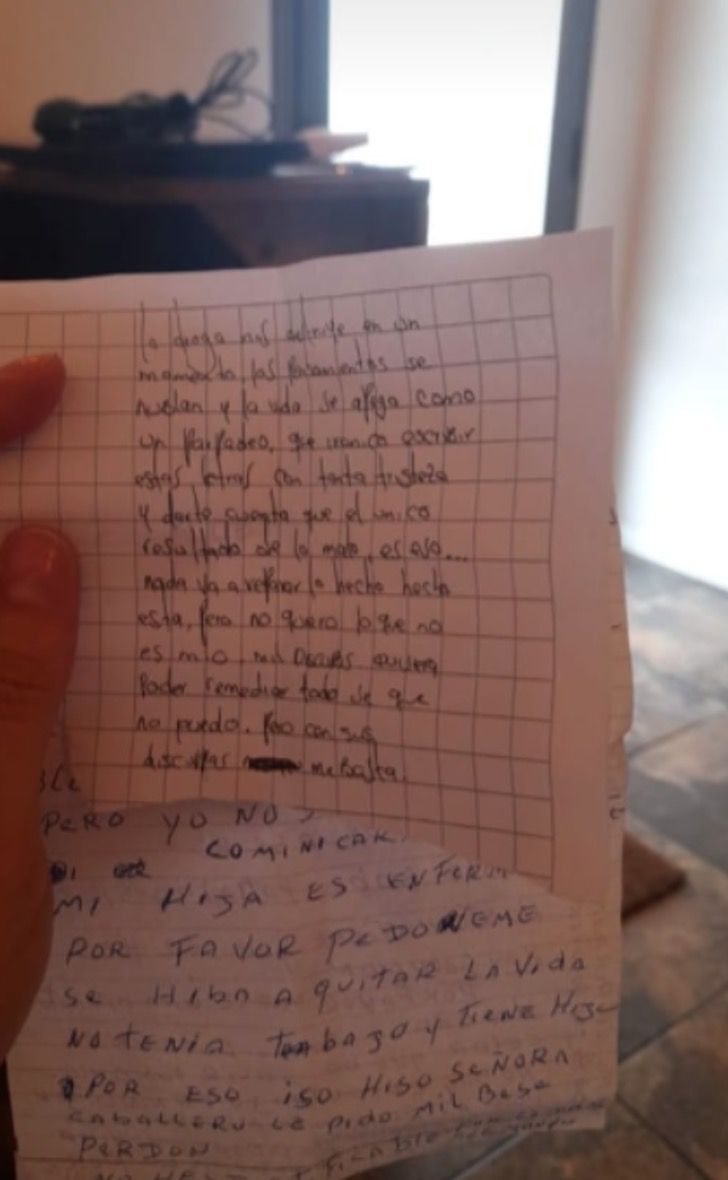 la droga nos derrite en un
momento, los pensamientos se
nublan y la vida se apaga como
un parpadeo, que ironico escribir
estas letras con tanta tristeza
y darte cuenta que el unico
resultado de lo malo, es eso...
nada va a refinar lo hecho hecho
esta, pero no quero lo que no
es mio, mil Disculpas quisiera
Poder remediar todo se que
no puedo. Pero con sus
disculpas me Basta.
PERO YO NO
COMINICAR.
MI HIJA ES ENFERM
POR FAVOR PEDONEME
SE HIBA A QUITAR LA VIDA
NO TENIA TRABAJO Y TIENE HIJO
POR ESO ISO HISO SEÑORA
CABALLERO LE PIDO MIL BESE
PERDON